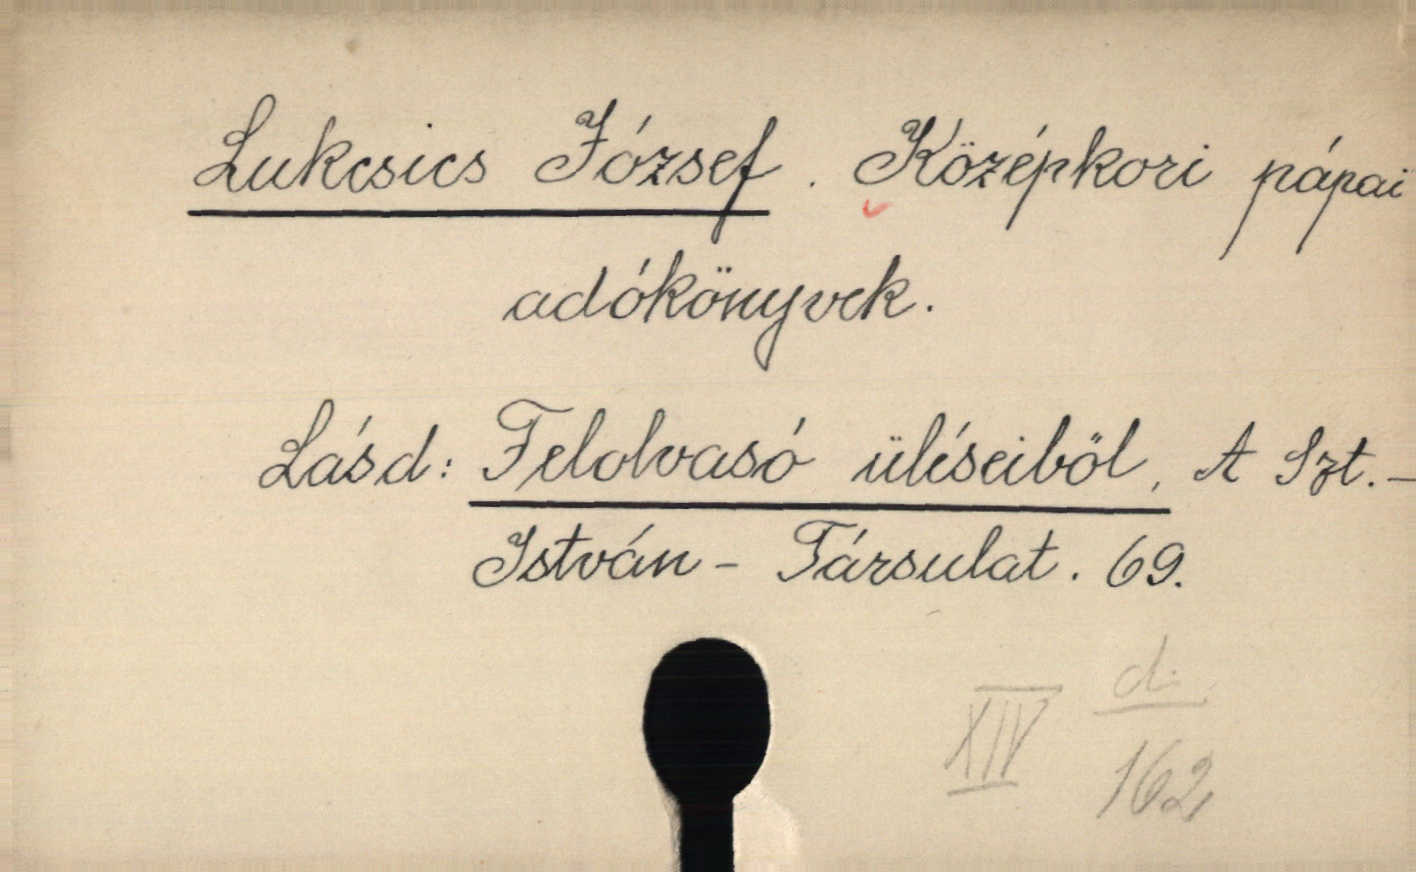 Lukcsics József. Középkori pápai
adókönyvek.
Lásd: Felolvasó üléseiből, A Szt.-
István-Társulat. 69.
XIV d.
162